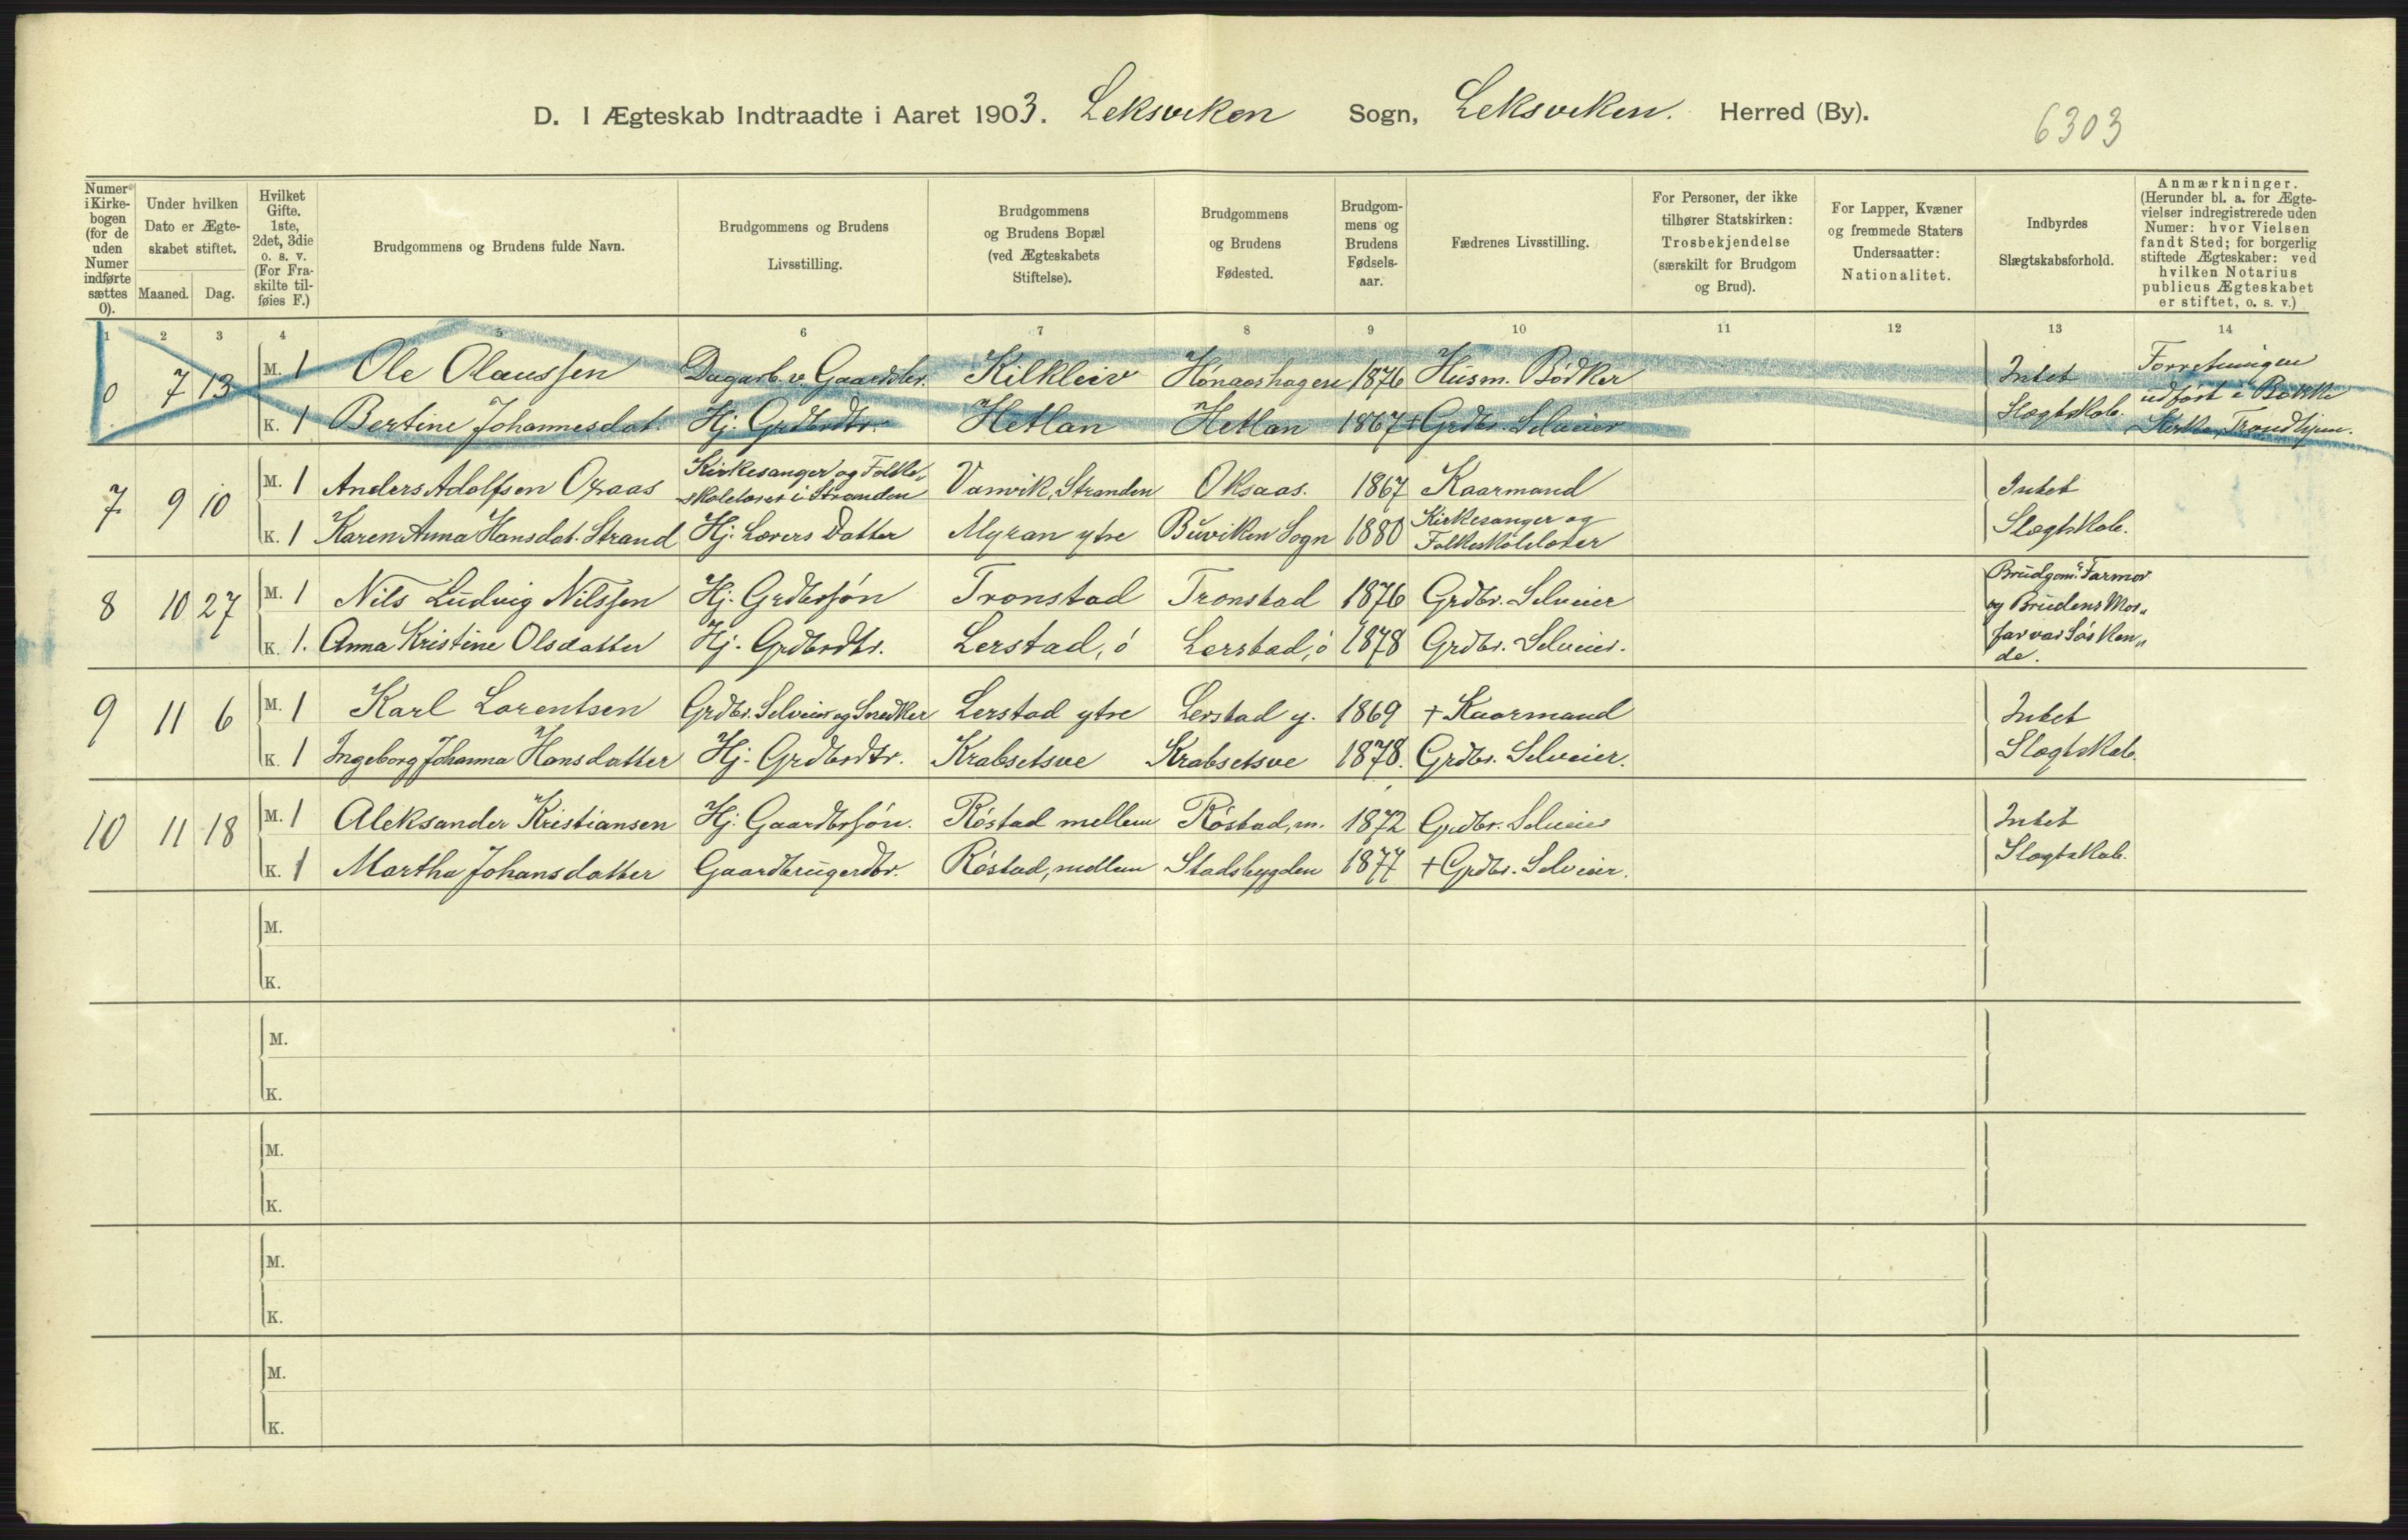 D. I Ægteskab Indtraadte i Aaret 1903. Leksviken Sogn, Leksviken. Herred (By).
6303
Numer i Kirke-bogen (for de uden Numer indførte sættes 0).
Under hvilken Dato er Ægte-skabet stiftet.
Maaned. Dag.
Hvilket Gifte. 1ste, 2det, 3die o. s. v. (For Fra-skilte til-føies F.)
Brudgommens og Brudens fulde Navn.
Brudgommens og Brudens Livsstilling.
Brudgommens og Brudens Bopæl (ved Ægteskabets Stiftelse).
Brudgommens og Brudens Fødested.
Brudgom-mens og Brudens Fødsels-aar.
Fædrenes Livsstilling.
For Personer, der ikke tilhører Statskirken: Trosbekjendelse (særskilt for Brudgom og Brud).
For Lapper, Kvæner og fremmede Staters Undersaatter: Nationalitet.
Indbyrdes Slægtskabsforhold.
Anmærkninger. (Herunder bl. a. for Ægte-vielser indregistrerede uden Numer: hvor Vielsen fandt Sted; for borgerlig stiftede Ægteskaber: ved hvilken Notarius publicus Ægteskabet er stiftet, o. s. v.)
1 2 3 4 5 6 7 8 9 10 11 12 13 14
0 7 13 M. 1 Ole Olaussen Dagarb. v. Gaardsbr. Kilkleiv Hónaashagen 1876 Husm. Bódker Intet Forretningen
K. 1 Bertine Johannesdat. Hj. Grdbrdtr. Hetlan Hetlan 1867 + Grdbr. Selveier Slægtskab. udført i Bakke Kirke, Trondhjem.
7 9 10 M. 1 Anders Adolfsen Oxaas Kirkesanger og Folke-skolelærer i Stranden Vanvik, Stranden Oksaas. 1867 Kaarmand Intet
K. 1 Karen Anna Hansdat. Strand Hj. Lærers Datter Myran ytre Buviken Sogn 1880 Kirkesanger og Folkeskolelærer Slægtskab.
8 10 27 M. 1 Nils Ludvig Nilssen Hj. Grdbrsón Tronstad Tronstad 1876 Grdbr. Selveier Brudgoms Farmor og Brudens Mor-
K. 1. Anna Kristine Olsdatter Hj. Grdbrdtr. Lerstad, ó Lerstad, ó 1878 Grdbr. Selveier. far var Sósken-de.
9 11 6 M. 1 Karl Lorentsen Grdbr. Selveier og Snedker Lerstad ytre Lerstad y. 1869 + Kaarmand Intet
K. 1 Ingeborg Johanna Hansdatter Hj. Grdbrdtr. Krabsetsve Krabsetsve 1878. Grdbr. Selveier. Slægtskab.
10 11 18 M. 1 Aleksander Kristiansen Hj. Gaardbrsón. Róstad mellem Róstad, m. 1872 Grdbr. Selveier Intet
K. 1 Martha Johansdatter Gaardbrugerdtr. Róstad, mellem Stadsbygden 1877 + Grdbr. Selveier. Slægtskab.
M.
K.
M.
K.
M.
K.
M.
K.
M.
K.